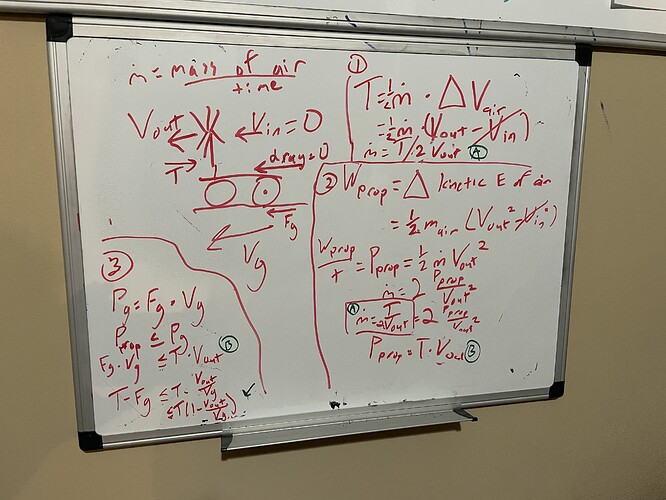 ṁ = mass of air
time
Vout
Vin = 0
T
drag = 0
Fg
Vg
①
T = ½ ṁ · Δ Vair
= ½ ṁ · (Vout - Vin)
ṁ = T/2 Vout Ⓐ
② Wprop = Δ kinetic E of air
= ½ mair (Vout² - Vin²)
Wprop
t
= Pprop = ½ ṁ Vout²
ṁ = 2 Pprop
Vout²
Ⓐ
ṁ = T
2Vout
= 2 Pprop
Vout²
Pprop = T · Vout Ⓑ
③
Pg = Fg · Vg
Pprop ≤ Pg
Fg · Vg ≤ T · Vout Ⓑ
T - Fg ≤ T - Vout
Vg
≤ T(1 - Vout
Vg)